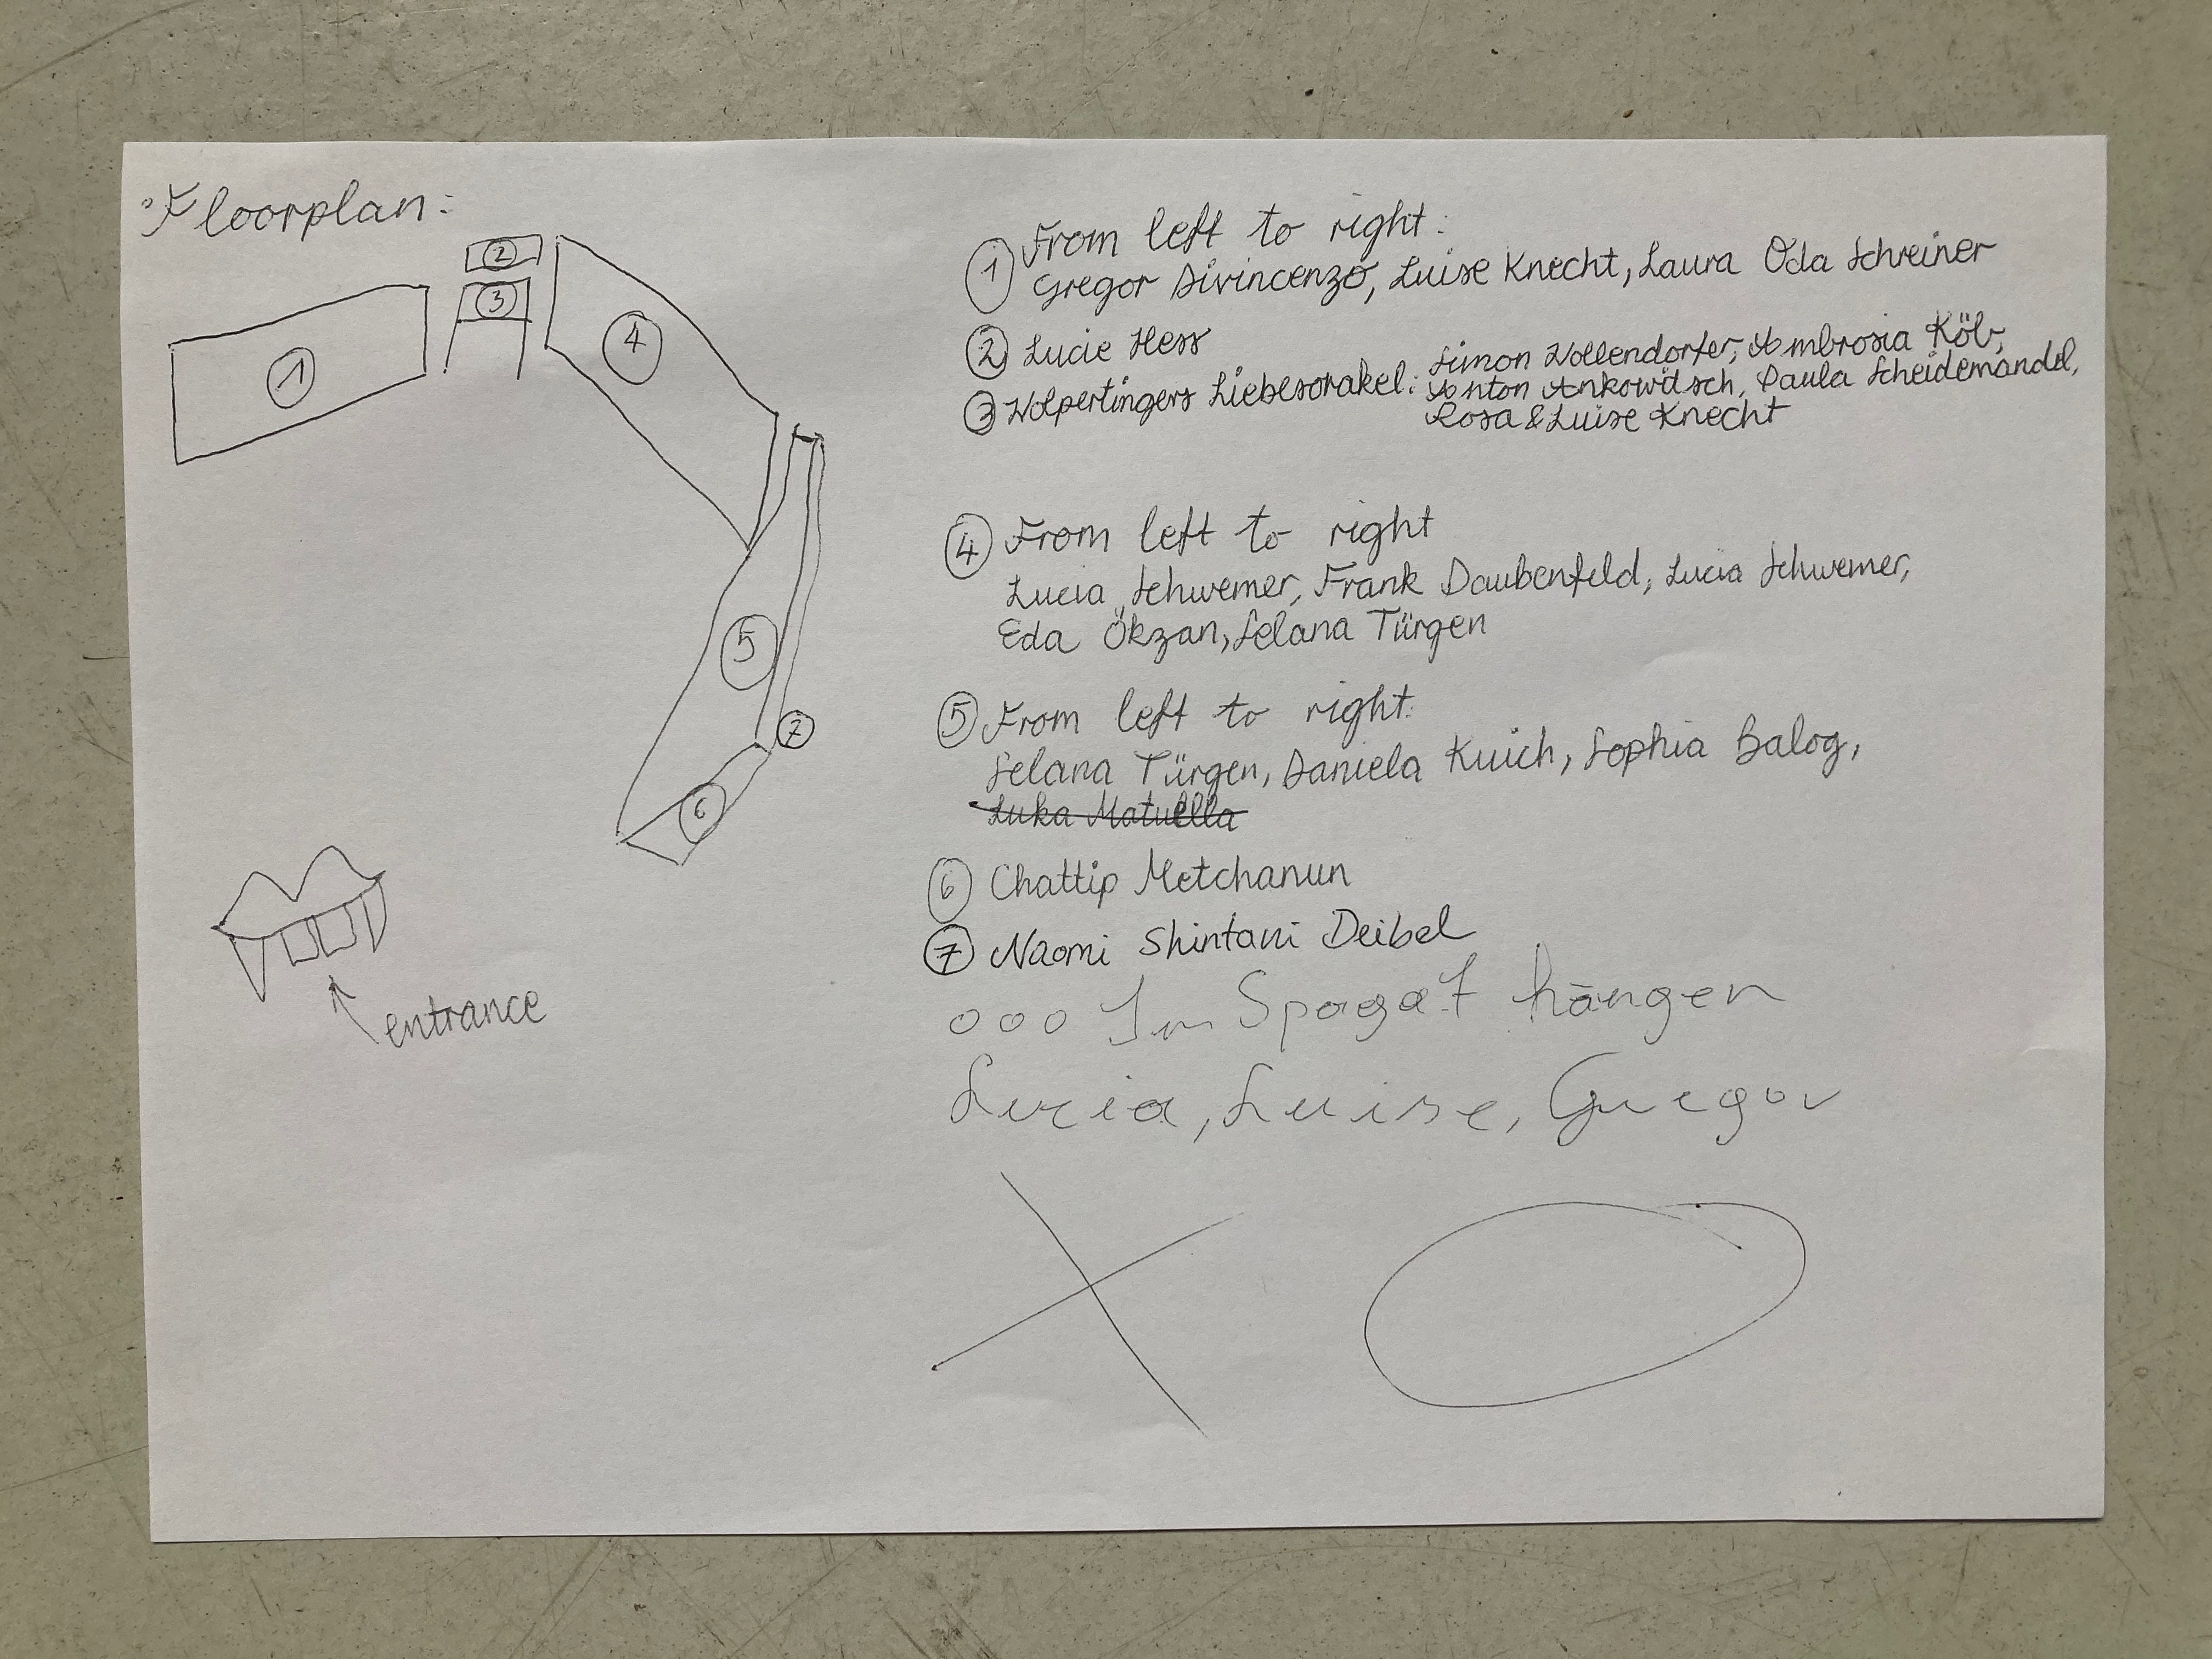 Floorplan:
1
2
3
4
5
6
7
entrance
① From left to right:
Gregor Divincenzo, Luise Knecht, Laura Oda Schreiner
② Lucie Hess
③ Wolpertingers Liebesorakel: Simon Wollendorfer, Ambrosia Köb,
Anton Ankowitsch, Paula Scheidemandel,
Rosa & Luise Knecht
④ From left to right
Lucia Schwemer, Frank Daubenfeld, Lucia Schwemer,
Eda Ökzan, Selana Türgen
⑤ From left to right:
Selana Türgen, Daniela Kuich, Sophia Balog,
Luka Matuella
⑥ Chattip Metchanun
⑦ Naomi Shintani Deibel
ooo Im Spagat hängen
Lucia, Luise, Gregor